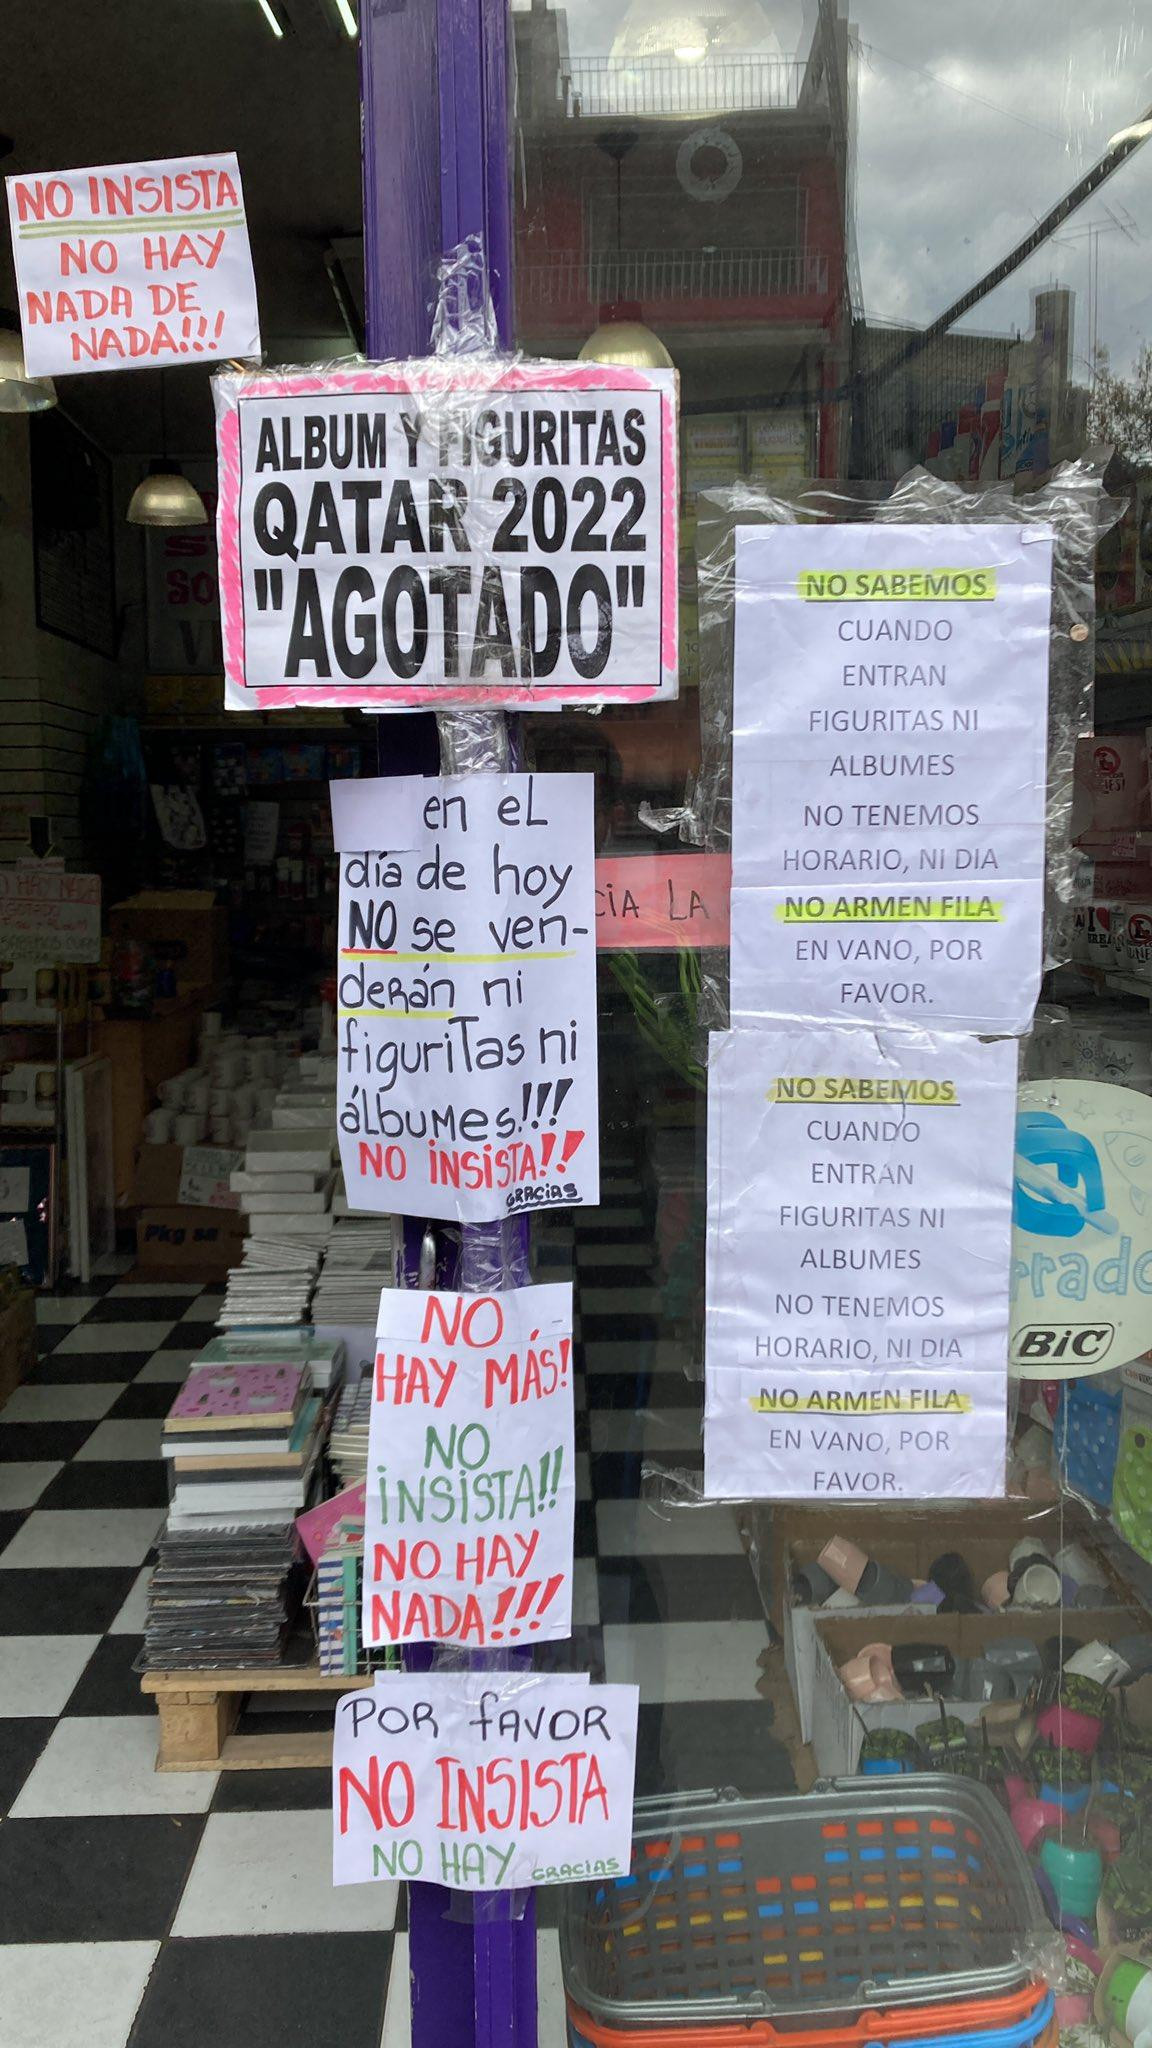 NO INSISTA
NO HAY
NADA DE
NADA!!!
ALBUM Y FIGURITAS
QATAR 2022
"AGOTADO"
en el
día de hoy
NO se ven-
derán ni
figuritas ni
álbumes!!!
NO INSISTA!!
GRACIAS
NO
HAY MÁS!
NO
INSISTA!!
NO HAY
NADA!!!
POR fAVOR
NO INSISTA
NO HAY GRACIAS
NO SABEMOS
CUANDO
ENTRAN
FIGURITAS NI
ALBUMES
NO TENEMOS
HORARIO, NI DIA
NO ARMEN FILA
EN VANO, POR
FAVOR.
NO SABEMOS
CUANDO
ENTRAN
FIGURITAS NI
ALBUMES
NO TENEMOS
HORARIO, NI DIA
NO ARMEN FILA
EN VANO, POR
FAVOR.
LA
BIC
Pkg sa